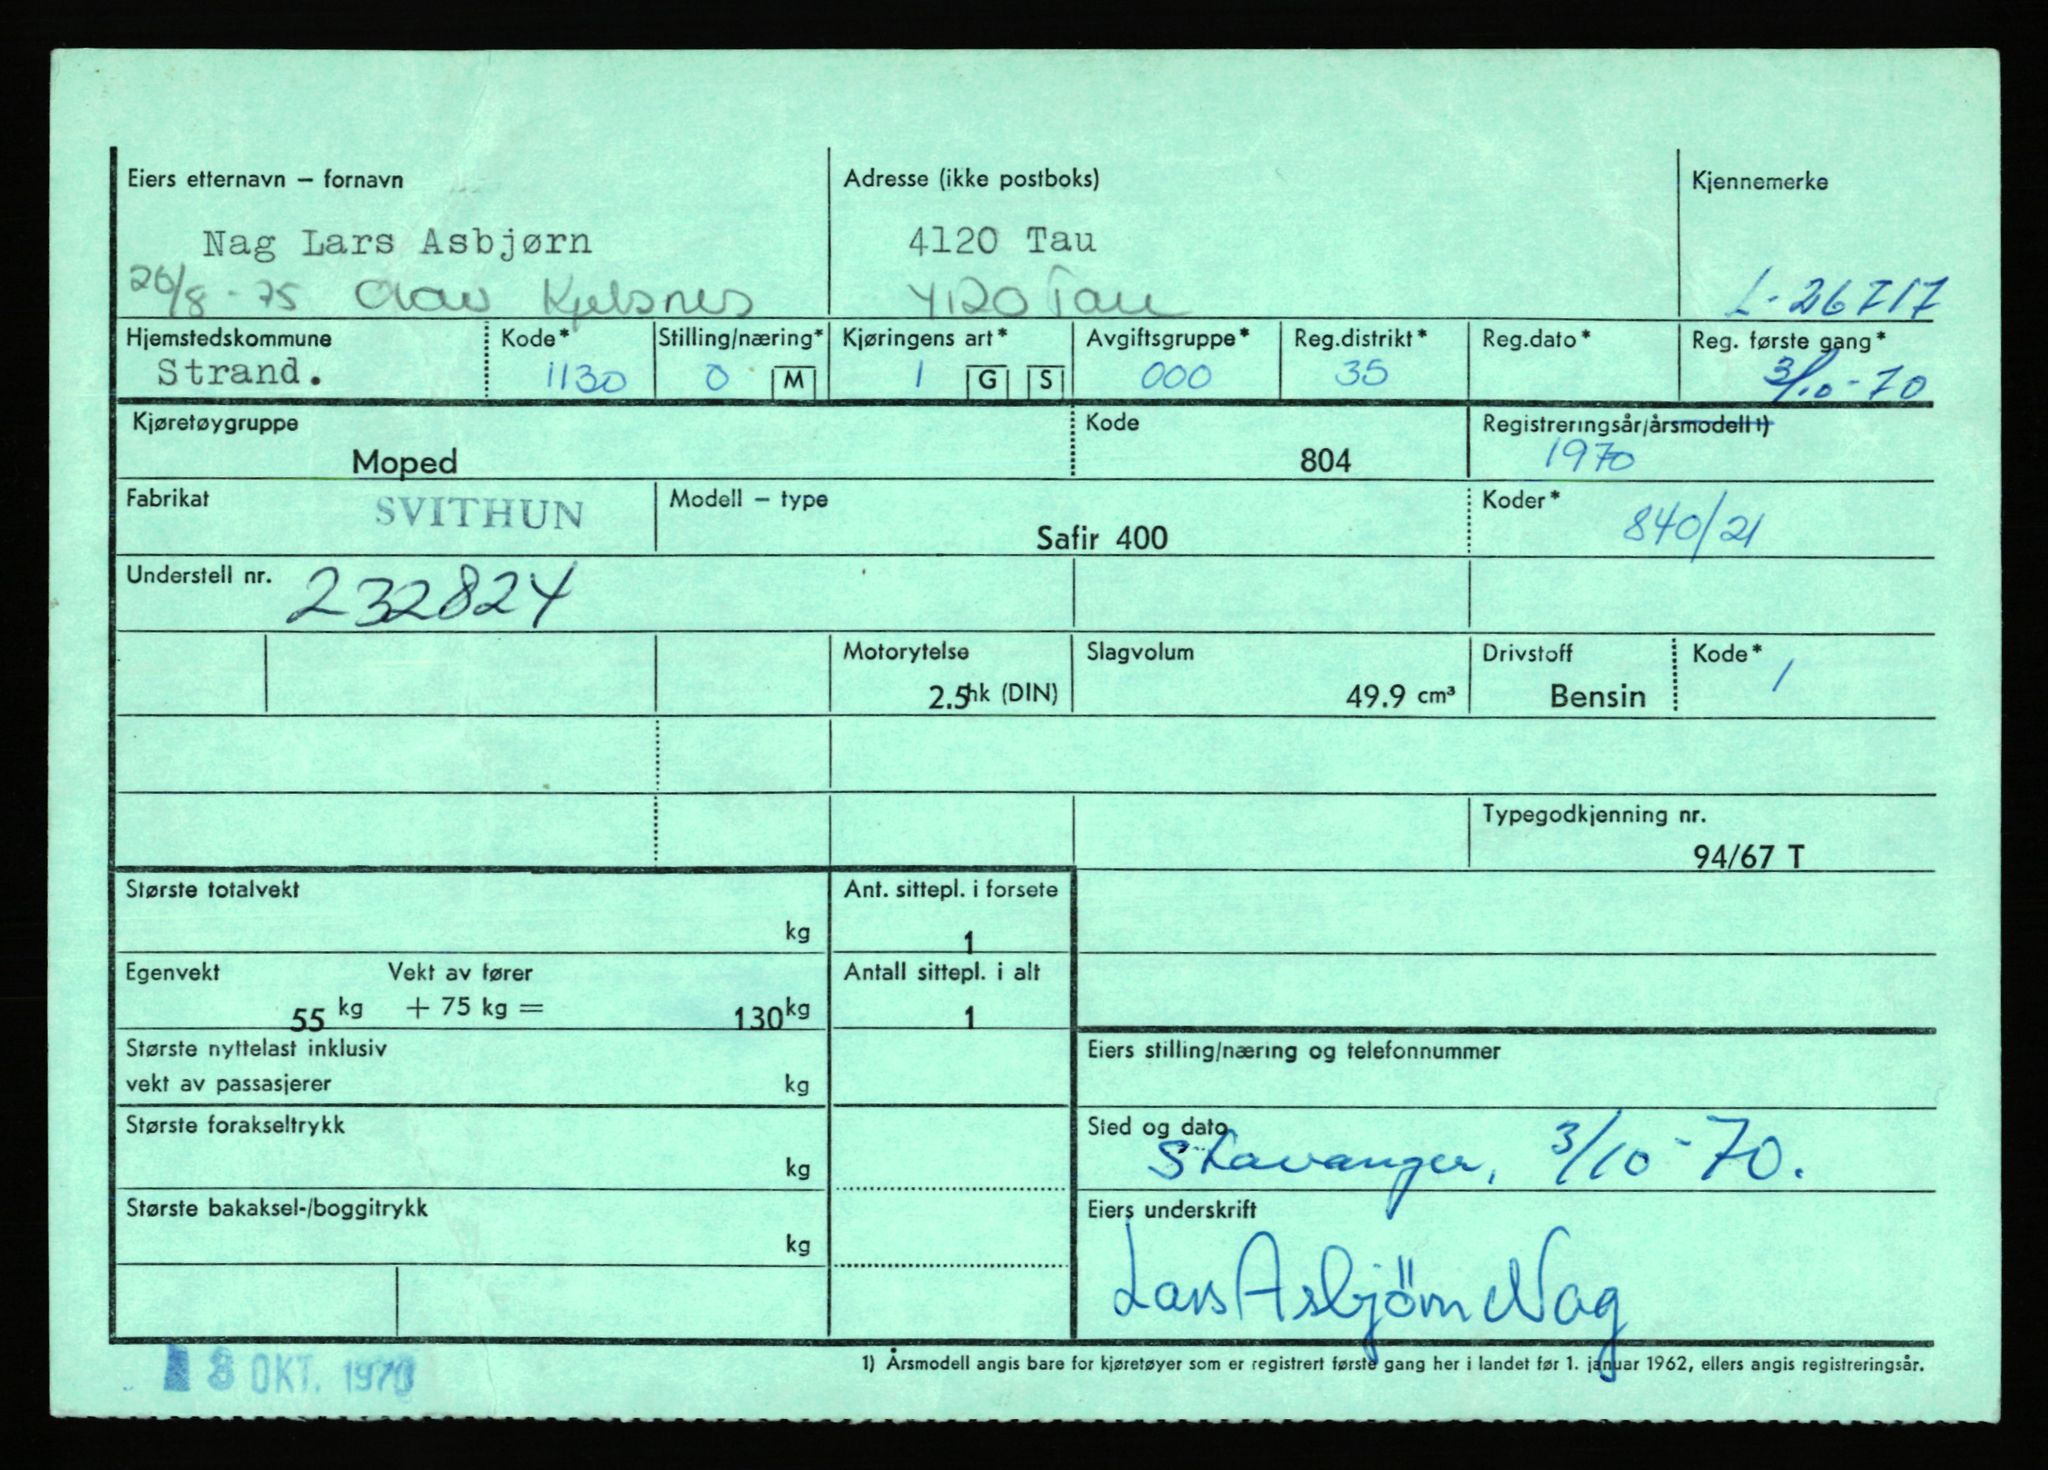 Eiers etternavn – fornavn
Adresse (ikke postboks)
Kjennemerke
Nag Lars Asbjørn
4120 Tau
26/8-75 Olav Kjelsnes
4120 Tau
L-26717
Hjemstedskommune
Kode*
Stilling/næring*
Kjøringens art*
Avgiftsgruppe*
Reg.distrikt*
Reg.dato*
Reg. første gang*
Strand.
1130
0 M
1 G S
000
35
3/10-70
Kjøretøygruppe
Kode
Registreringsår/årsmodell 1)
Moped
804
1970
Fabrikat
SVITHUN
Modell – type
Koder*
Safir 400
840/21
Understell nr.
232824
Motorytelse
Slagvolum
Drivstoff
Kode*
2.5 hk (DIN)
49.9 cm³
Bensin
1
Typegodkjenning nr.
94/67 T
Største totalvekt
Ant. sittepl. i forsete
kg
1
Egenvekt
Vekt av fører
Antall sittepl. i alt
55 kg + 75 kg = 130 kg
1
Største nyttelast inklusiv
Eiers stilling/næring og telefonnummer
vekt av passasjerer
kg
Største forakseltrykk
Sted og dato
kg
Stavanger, 3/10-70.
Største bakaksel-/boggitrykk
Eiers underskrift
kg
Lars Asbjörn Nag
1) Årsmodell angis bare for kjøretøyer som er registrert første gang her i landet før 1. januar 1962, ellers angis registreringsår.
OKT. 1970